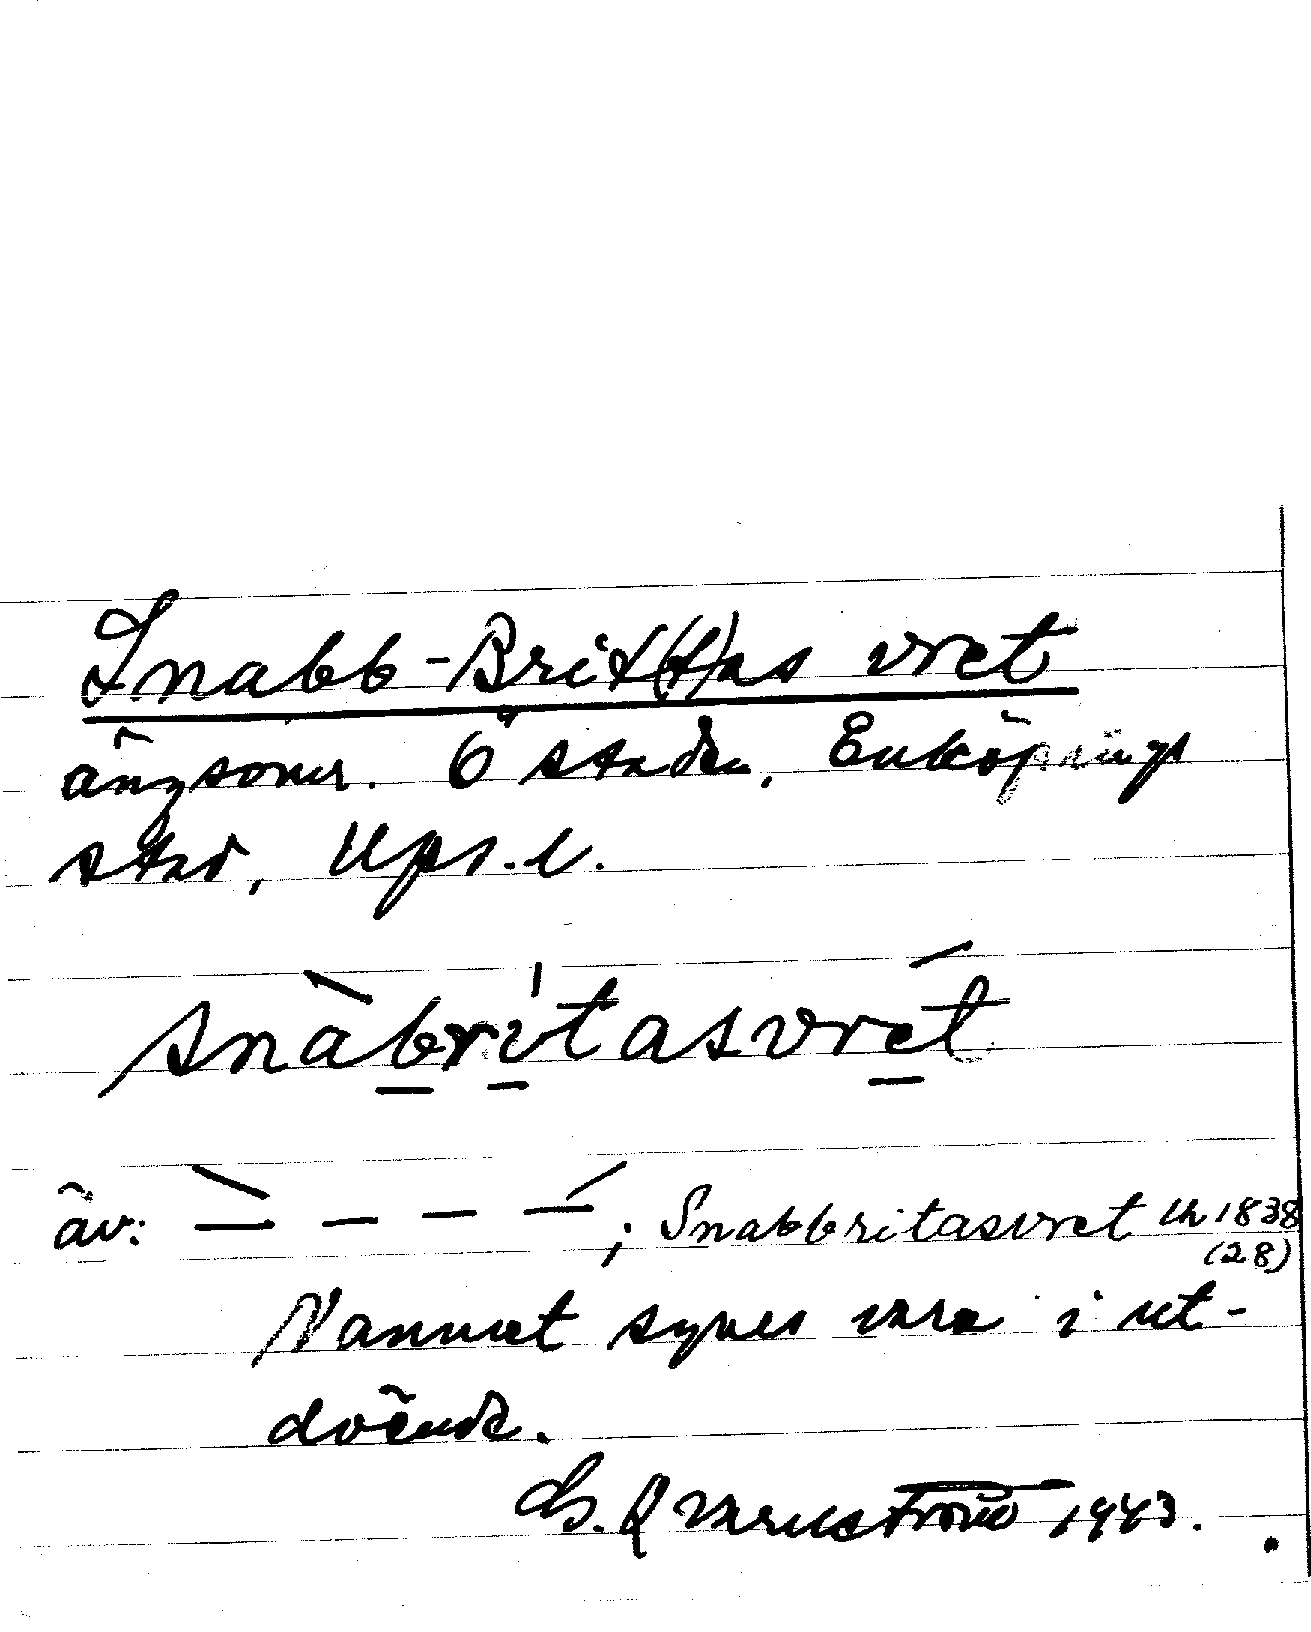 Snabb-Brit(t)as vret
ängsomr. Ö staden, Enköpings
stad, Upps. l.
snàbritasvrét
äv: – – – – ; Snabbritasvret Lh 1838
(28)
Namnet synes vara i ut-
döende.
G. Qvarnström 1943.